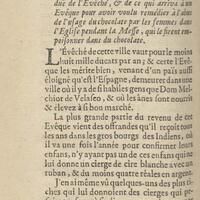 duë de l'Evêché, & de ce qui arriva à un
Evêque pour avoir voulu remedier à l'abus
de l'usage du chocolate par les femmes dans
l'Eglise pendant la Messe, qui le firent em-
poisonner dans du chocolate.
L'Evêché de cette ville vaut pour le moins
huit mille ducats par an; & certe l'Evê-
que les mérite bien, venant d'un païs aussi
éloigné qu'est l'Espagne, demeurer dans une
ville où il y a de si habiles gens que Dom Mel-
chior de Velasco, & où les ânes sont nourris
& élevez à si bon marché.
La plus grande partie du revenu de cet
Evêque vient des offrandes qu'il reçoit tous
les ans dans les gros bourgs des Indiens, où
il va une fois l'année pour confirmer leurs
enfans, n'y ayant pas un de ces enfans qui ne
lui donne un cierge de cire blanche avec un
ruban, & du moins quatre réales en argent.
J'en ai même vû quelques-uns des plus ri-
ches qui lui donnoient des cierges qui pe-